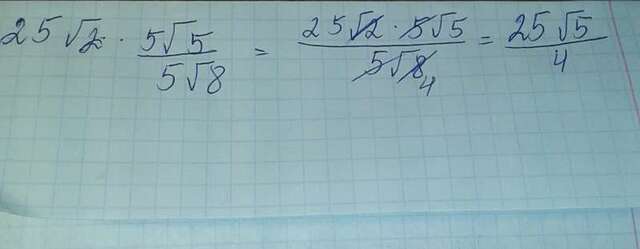 25√2 · 5√5/5√8 = 25√2 · 5√5/5√8 4 = 25√5/4